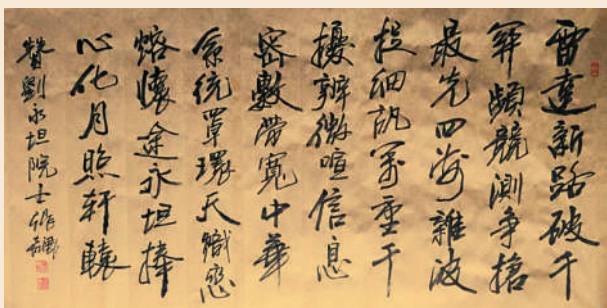 雷達新路破千
頻競測爭搶
最先四海雜波
捉細訊萬重干
擾辨微喧信息
密數帶寬中華
系統罩環天熾戀
熔懷途永坦捧
心化月照軒轅
贊劉永坦院士